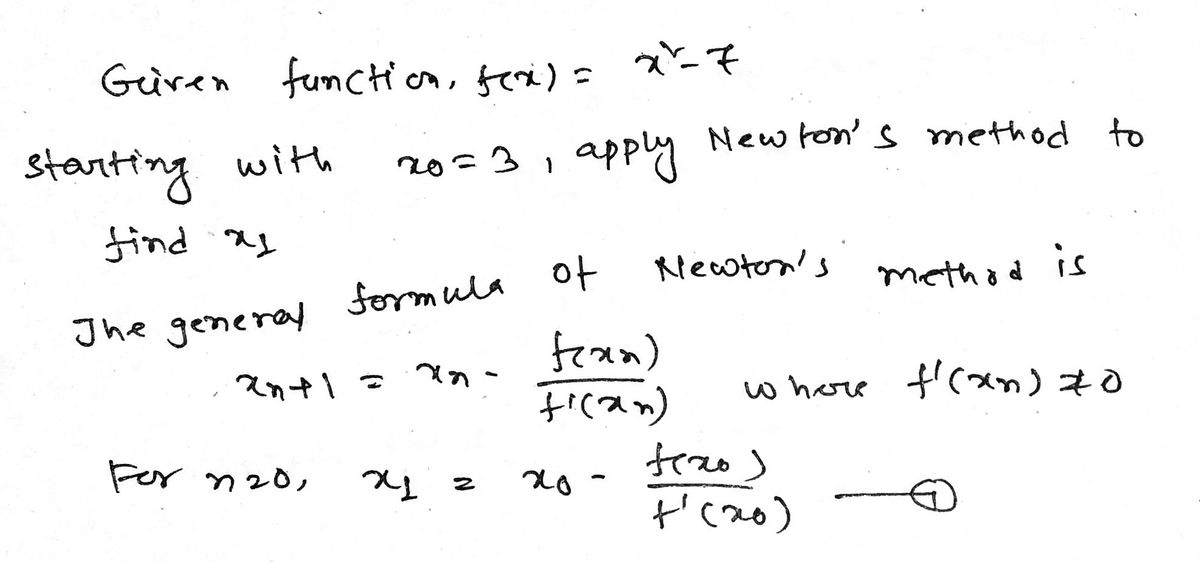 Given function, f(x) = x²-7
starting with x0 = 3, apply Newton's method to
find x1
The general formula of Newton's method is
xn+1 = xn - f(xn)/f'(xn) where f'(xn) ≠ 0
For n=0, x1 = x0 - f(x0)/f'(x0) —①